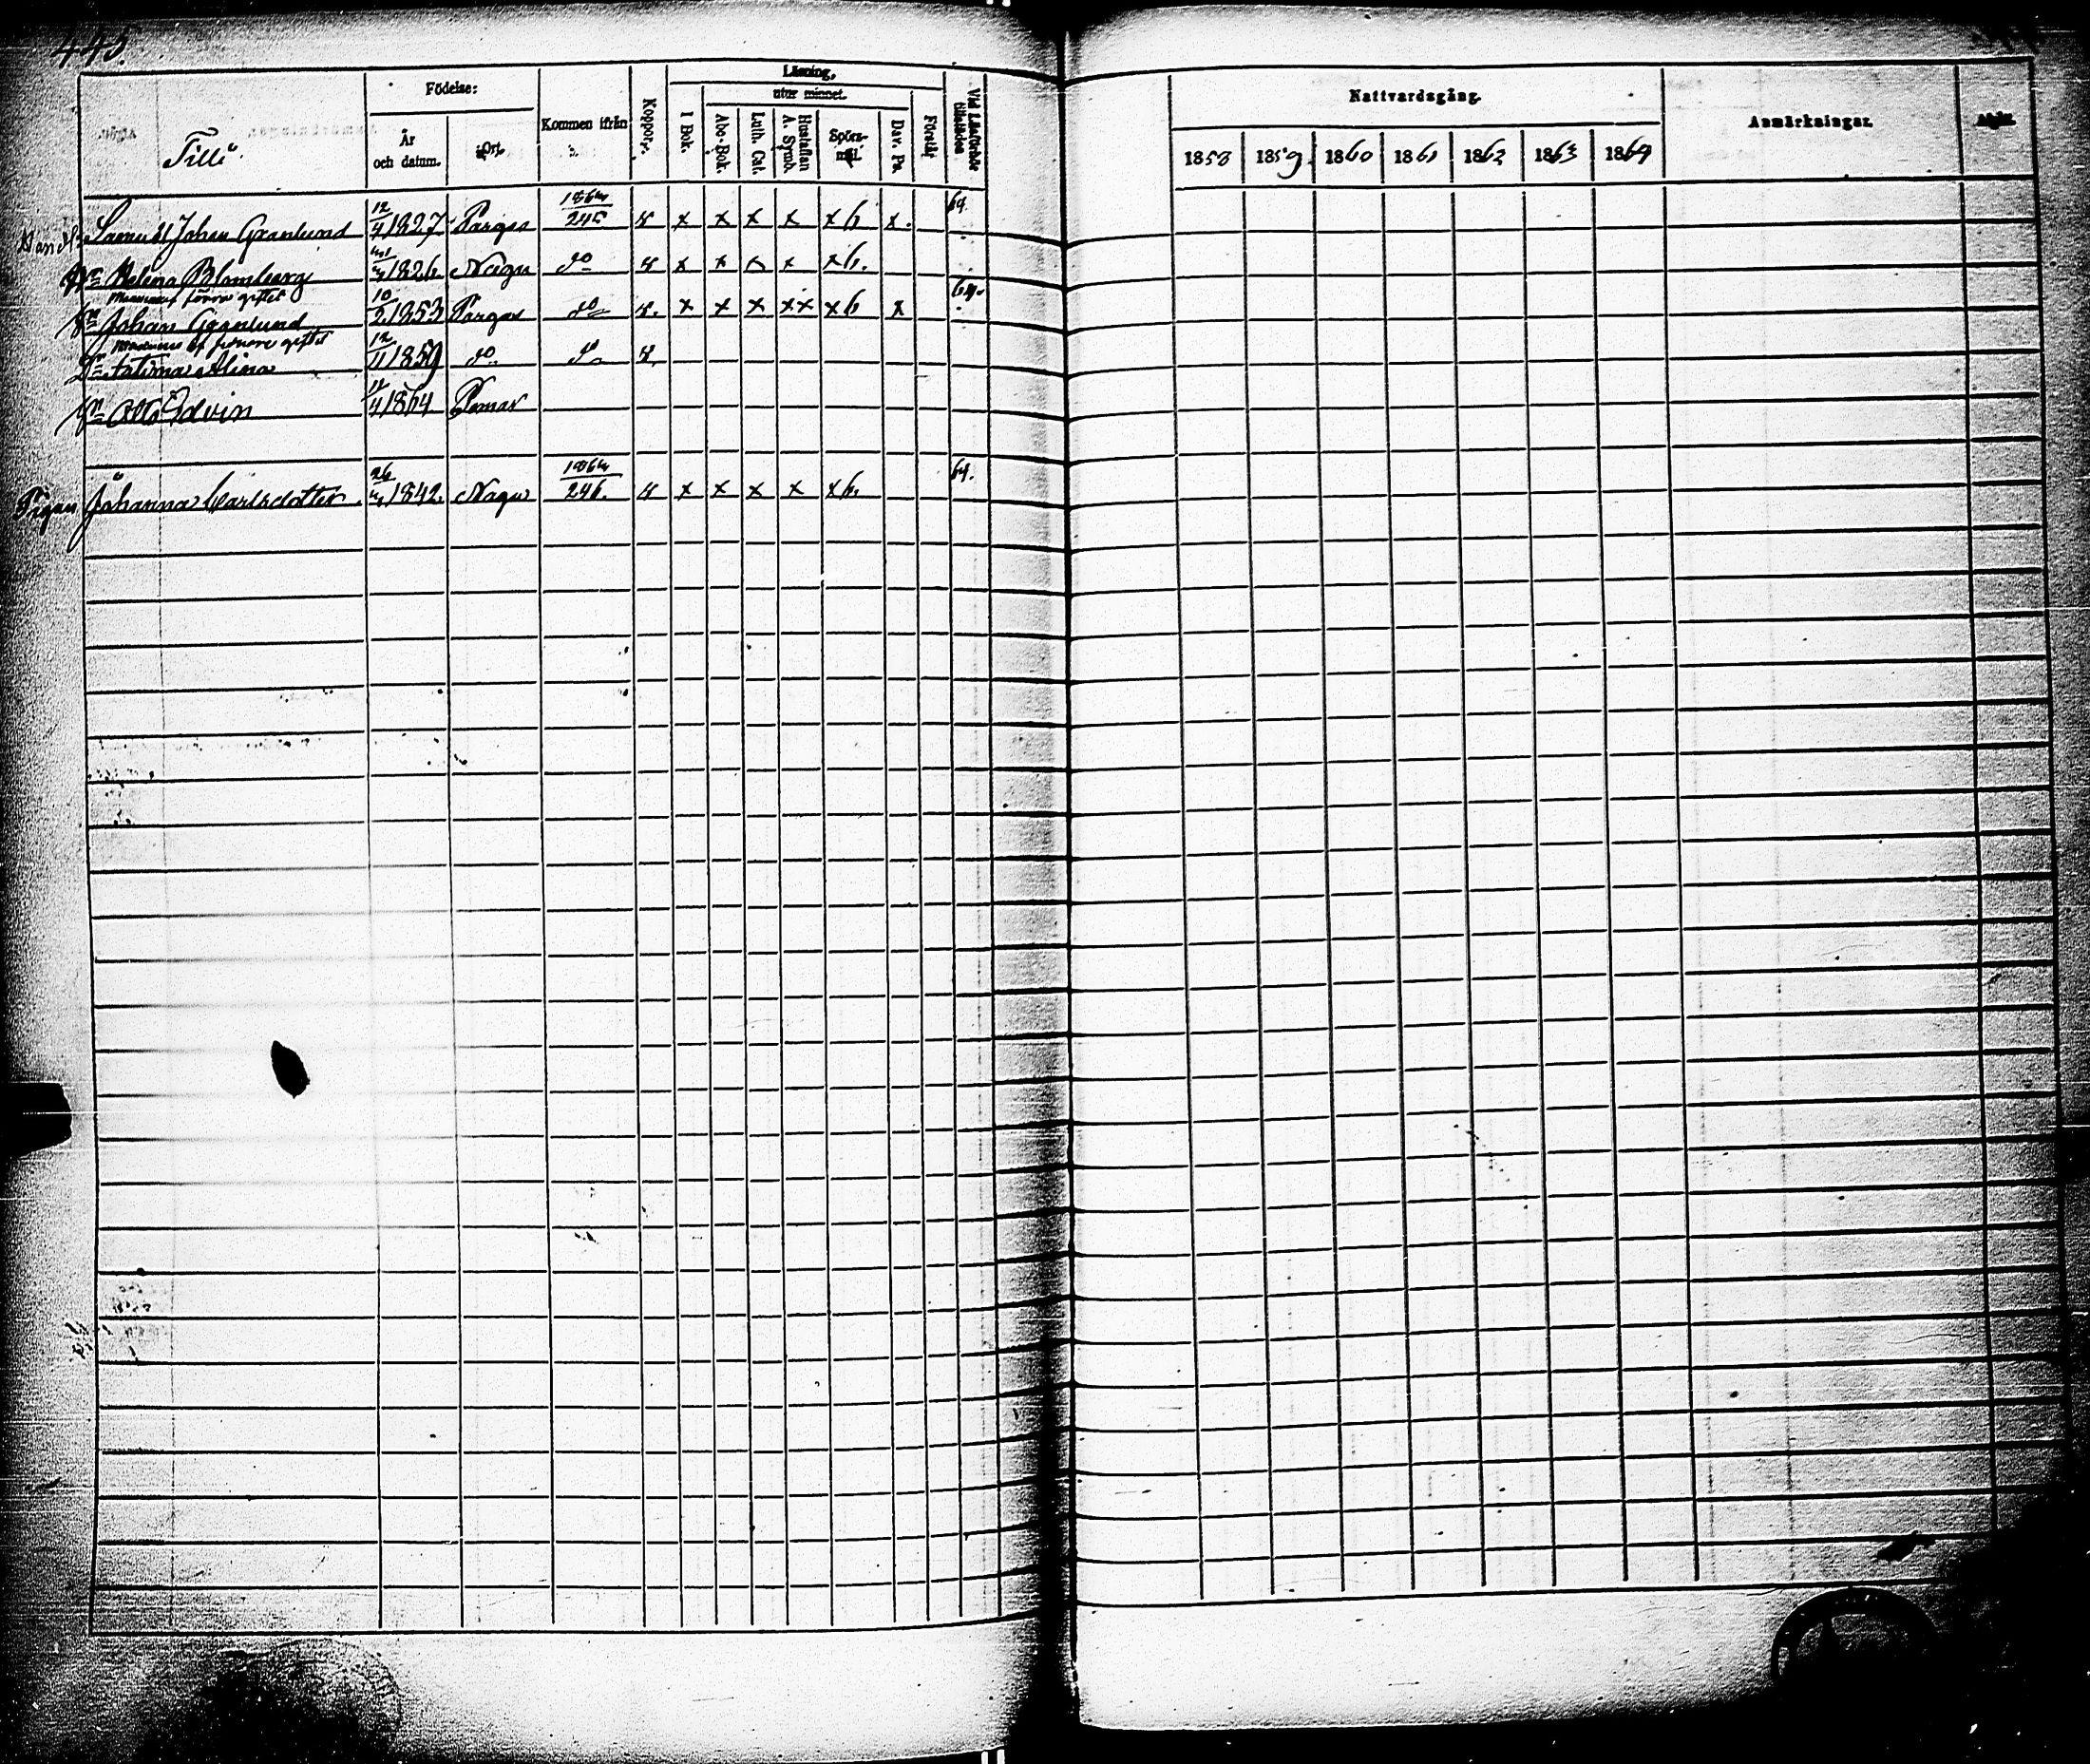 445.
Tillö.
Födelse:
År
och datum.
Ort.
Kommen ifrån
Koppor.
Läsning,
utur minnet.
I Bok.
Abc-Bok.
Luth. Cat.
Hustaflan
A. Symb.
Spörs-
mål.
Dav. Ps.
Förstår
Vid Läsförhör
tillstädes
Nattvardsgång.
1858 1859. 1860 1861 1862 1863 1864
Anmärkningar.
Samuel Johan Granlund 12/4 1827 Pargas 1864/245 x x x x x 6 x. 64.
Helena Blomberg 1826 Nagu do x x x x 6.
förra giftet
Sn Johan Granlund 10/2 1853 Pargas do x x x xx x 6 x 64.
giftet
Dr Fatima Alina 12/11 1859 do do
Sn Otto Edvin 4 1864 Pemar
Pigan Johanna Carlsdotter 26 1842. Nagu 1864/246. x x x x x 6. 64.